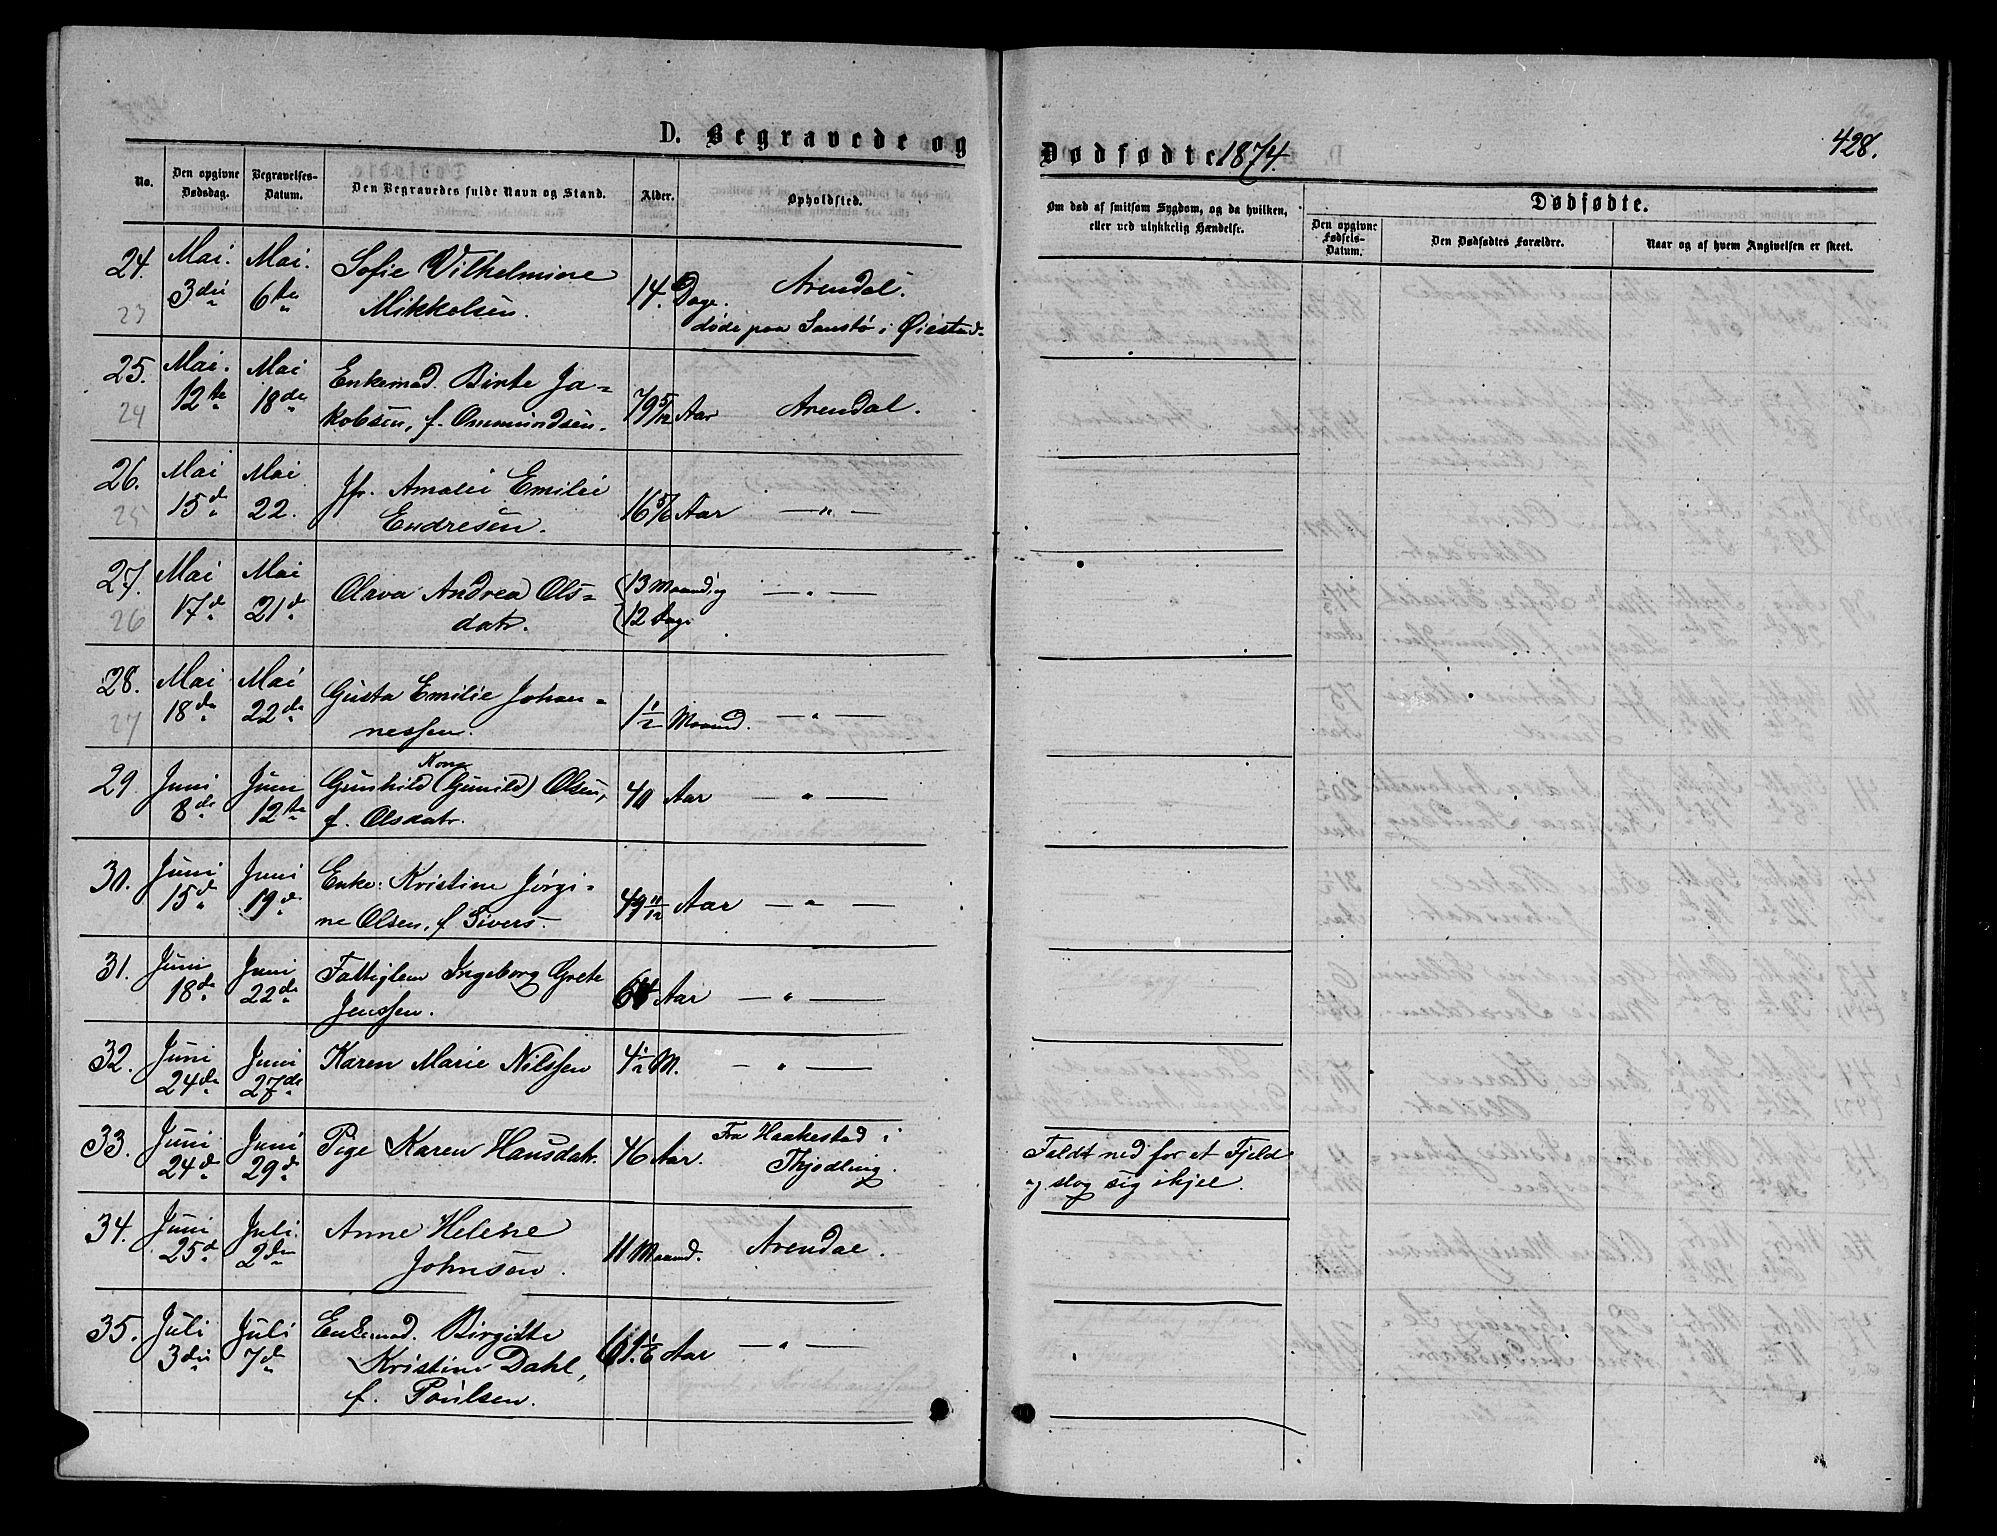 D. Begravede og Dødfødte 1874. 428.
No. Den opgivne Dødsdag. Begravelses-Datum. Den Begravedes fulde Navn og Stand. Alder. Opholdsted.
Om død af smitsom Sygdom, og da hvilken, eller ved ulykkelig Hændelse.
Dødfødte.
Den opgivne Fødsels-Datum. Den Dødfødtes Forældre. Naar og af hvem Angivelsen er skeet.
24. Mai. Mai. Sofie Vilhelmine
23 3die 6te Mikkelsen. 14. Dage. Arendal.
døde paa Sanstø i Øiestad
25. Mai. Mai Enkemad. Birte Ja=
24 12te 18de kobsen, f. Ommundsen. 79 5/12 Aar Arendal.
26. Mai Mai Jfr. Amalie Emilie
25 15d 22. Endresen. 16 5/6 Aar — " —
27. Mai Mai Olava Andrea Ols= 13 Maand. og — " —
26 17d 21d datr. 12 Dage
28. Mai Mai Gusta Emilie Johan=
27 18de 22de nessen. 1 1/2 Maaned. — " —
29. Juni Juni Kone
Gunhild (Gunild) Olsen, 40 Aar — " —
8de 12te f. Olsdatr.
30. Juni Juni Enke: Kristine Jørgi=
15d 19d ne Olsen, f. Sivers. 49 11/12 Aar — " —
31. Juni Juni Fattiglem Ingeborg Grete
18de 22de Jenssen. 64 Aar — " —
32. Juni Juni Karen Marie Nilssen 4 1/2 M. — " —
24de 27de
33. Juni Juni Pige Karen Hansdatr. 46 Aar. Fra Haakestad i
24d 29d Thjødling.
Feldt ned for et Fjeld
og slog sig ihjel.
34. Juni Juli. Anne Helene
25d 2den Johnsen. 11 Maaned. Arendal.
35. Juli Juli Enkemad. Birgitte
3die 7d Kristine Dahl, 61 1/6 Aar — " —
f. Poulsen.